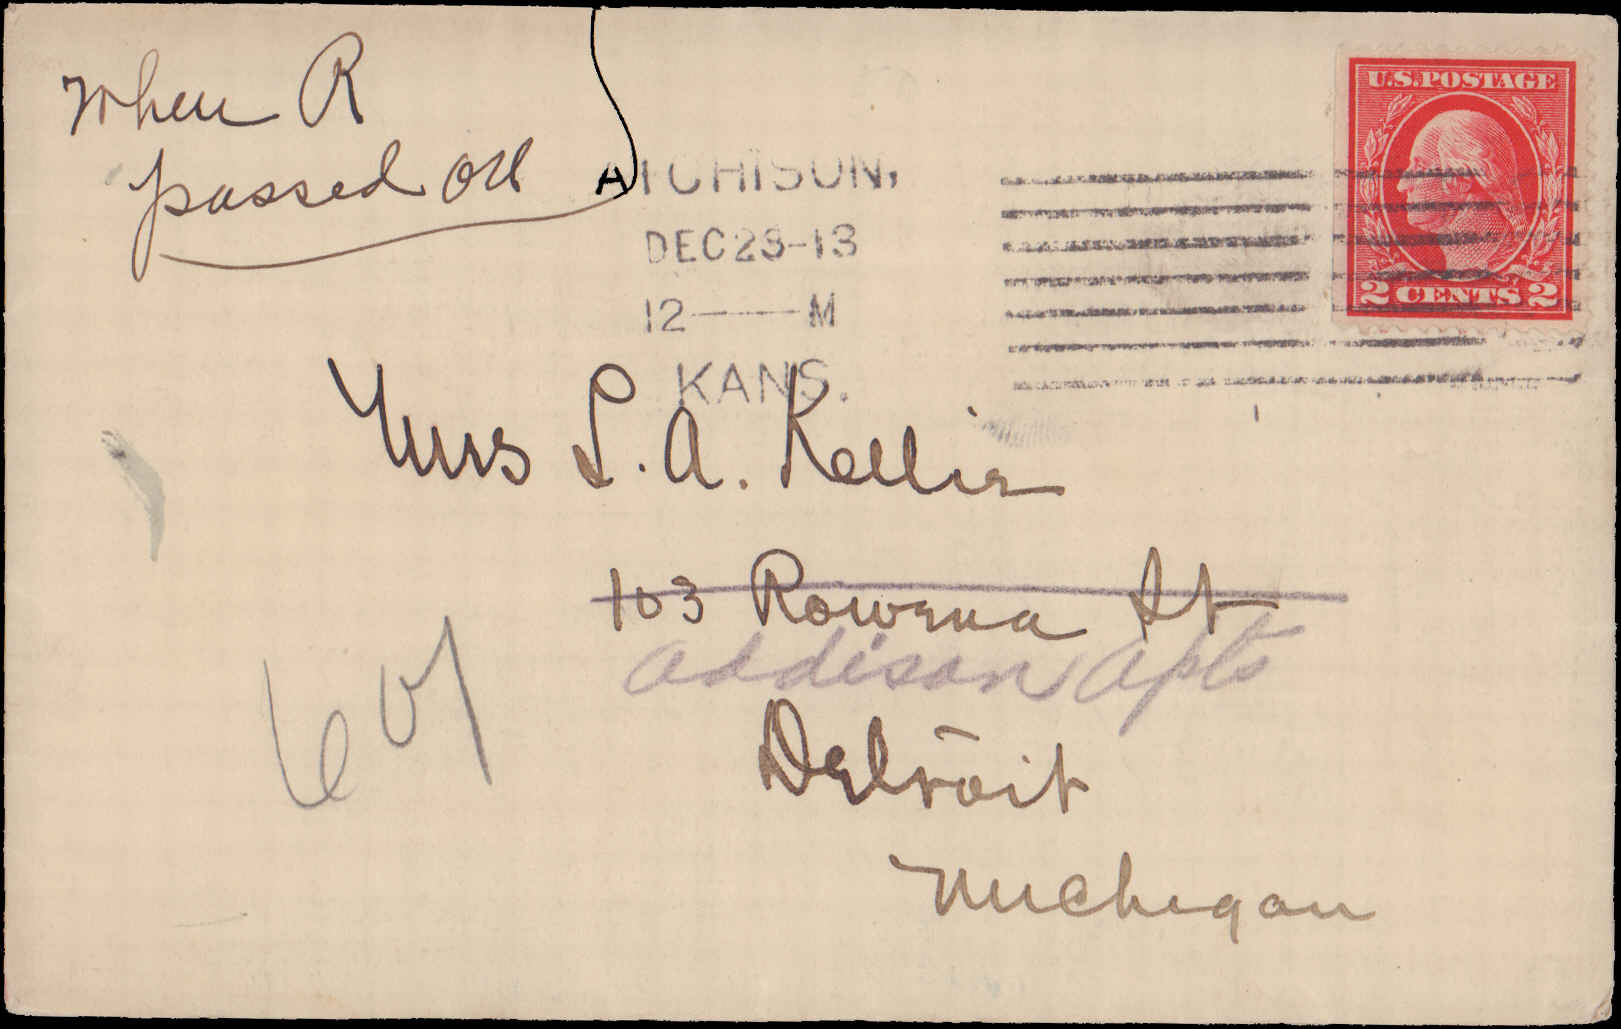 When R
passed on
ATCHISON,
DEC 23-13
12 M
KANS.
U.S. POSTAGE
2 CENTS 2
Mrs L. A. Kellie
103 Rowena St
Addison Apts
Detroit
Michigan
607